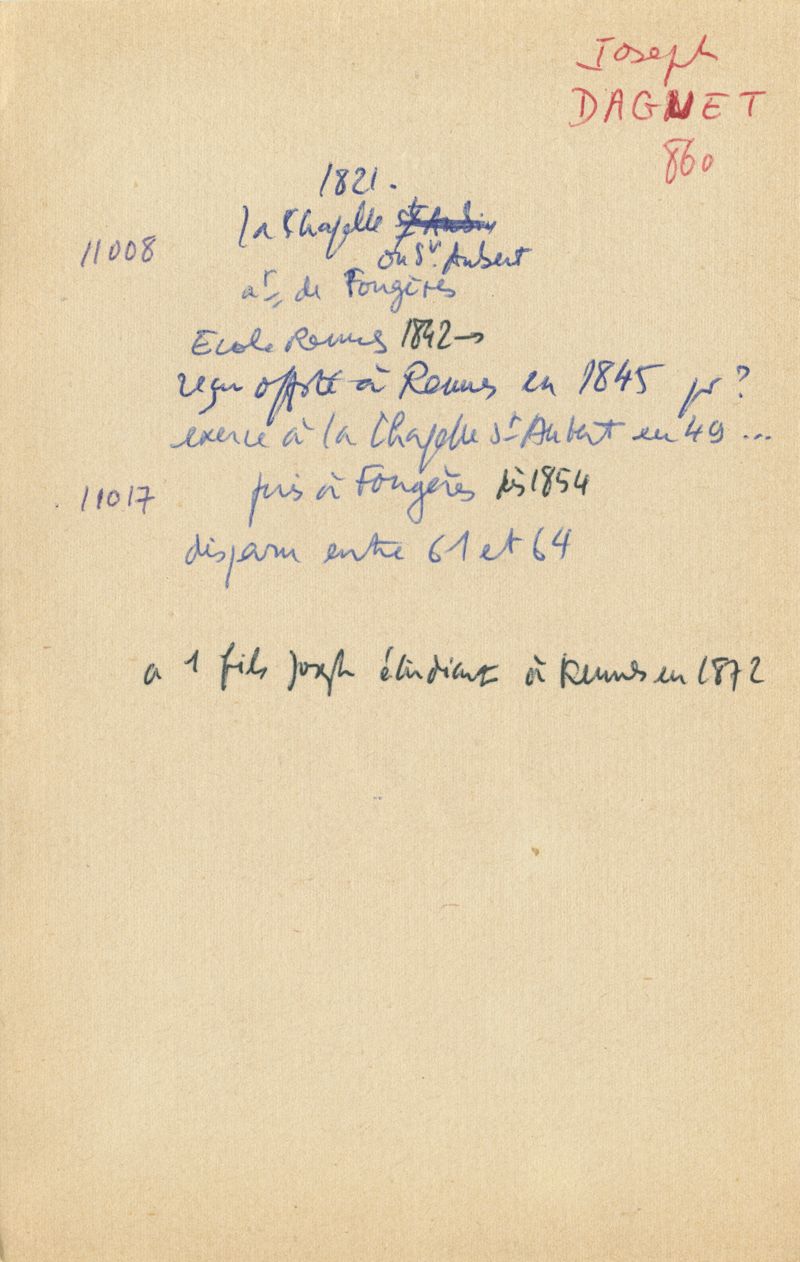 Joseph
DAGNET
860
1821.
la Chapelle St Aubin
11008
ou St Aubert
arr de Fougères
Ecole Rennes 1842→
reçu offté à Rennes en 1845 pr ?
exerce à la Chapelle St Aubert en 49 ...
11017 puis à Fougères dès 1854
disparu entre 61 et 64
a 1 fils Joseph étudiant à Rennes en 1872